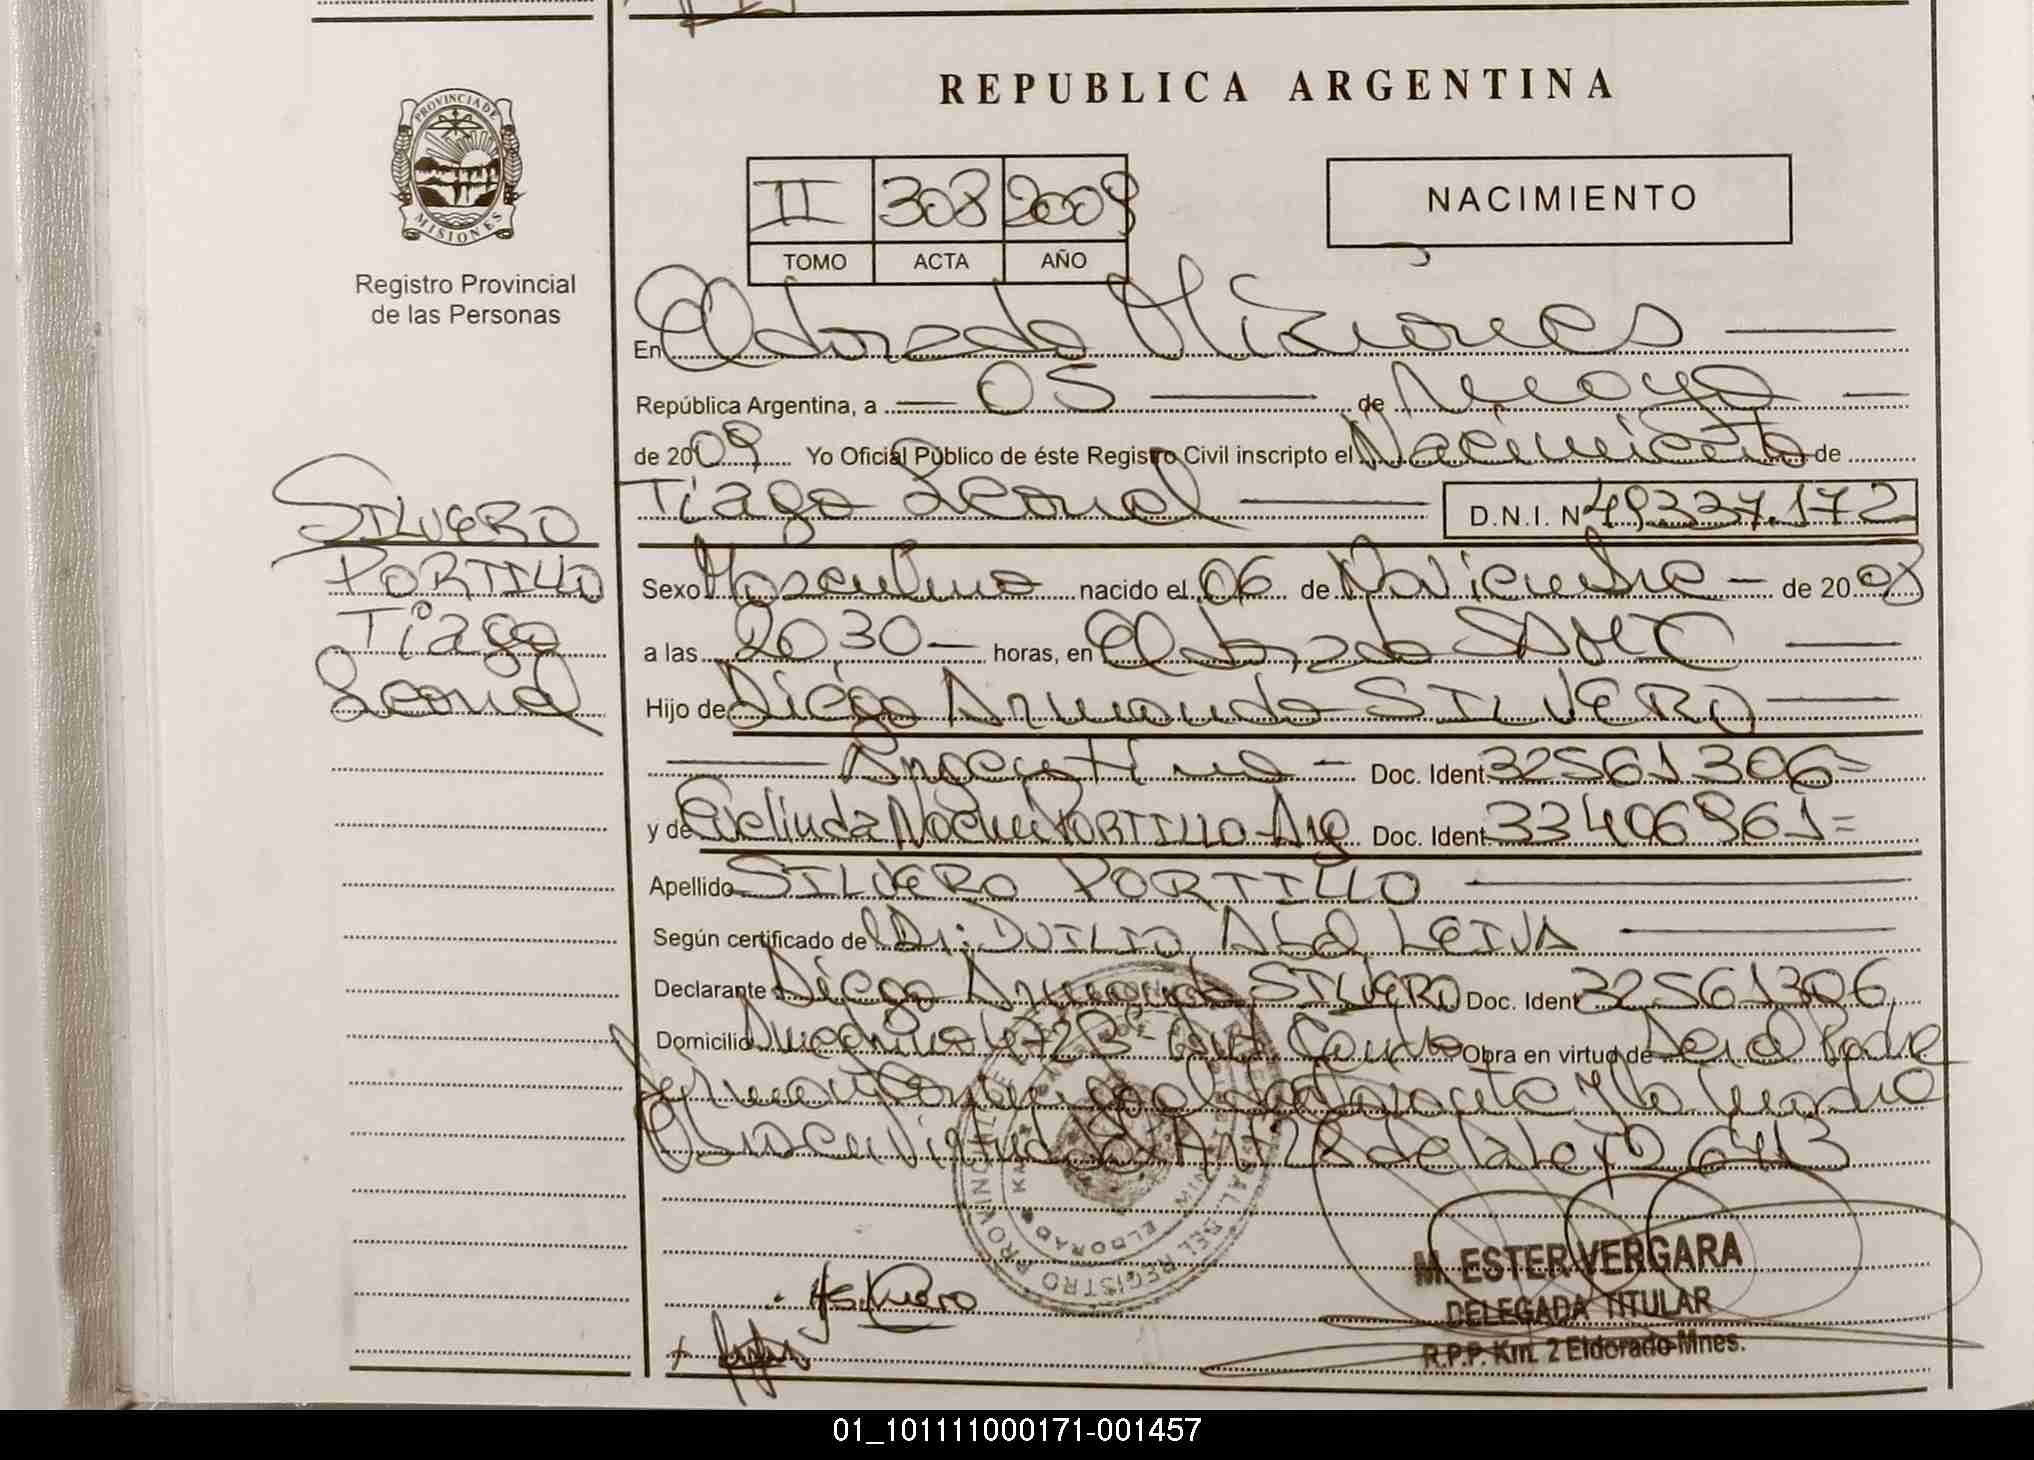 REPUBLICA ARGENTINA
PROVINCIA DE
MISIONES
Registro Provincial
de las Personas
II 308 2009
TOMO ACTA AÑO
NACIMIENTO
En Eldorado Misiones
República Argentina, a 05 de Mayo
de 2009 Yo Oficial Público de éste Registro Civil inscripto el Nacimiento de
Tiago Leonel D.N.I. Nº 49337.172
SILVERO
PORTILLO
Tiago
Leonel
Sexo Masculino nacido el 06 de Noviembre de 2008
a las 20 30 horas, en Eldorado SAMIC
Hijo de Diego Armando SILVERO
Argentino Doc. Ident. 32561306=
y de Evelinda Noemi PORTILLO Arg Doc. Ident. 33406961=
Apellido SILVERO PORTILLO
Según certificado de Dr. DUILIO LEIVA
Declarante Diego Armando SILVERO Doc. Ident. 32561306
Domicilio 4728 Obra en virtud de Ser el Padre
Firman Conmigo el declarante y la madre
Obra en Virtud del Art 28 de la Ley 6413
REGISTRO PROVINCIAL DE
ELDORADO
M. ESTER VERGARA
DELEGADA TITULAR
R.P.P. Km. 2 Eldorado-Mnes.
01_101111000171-001457